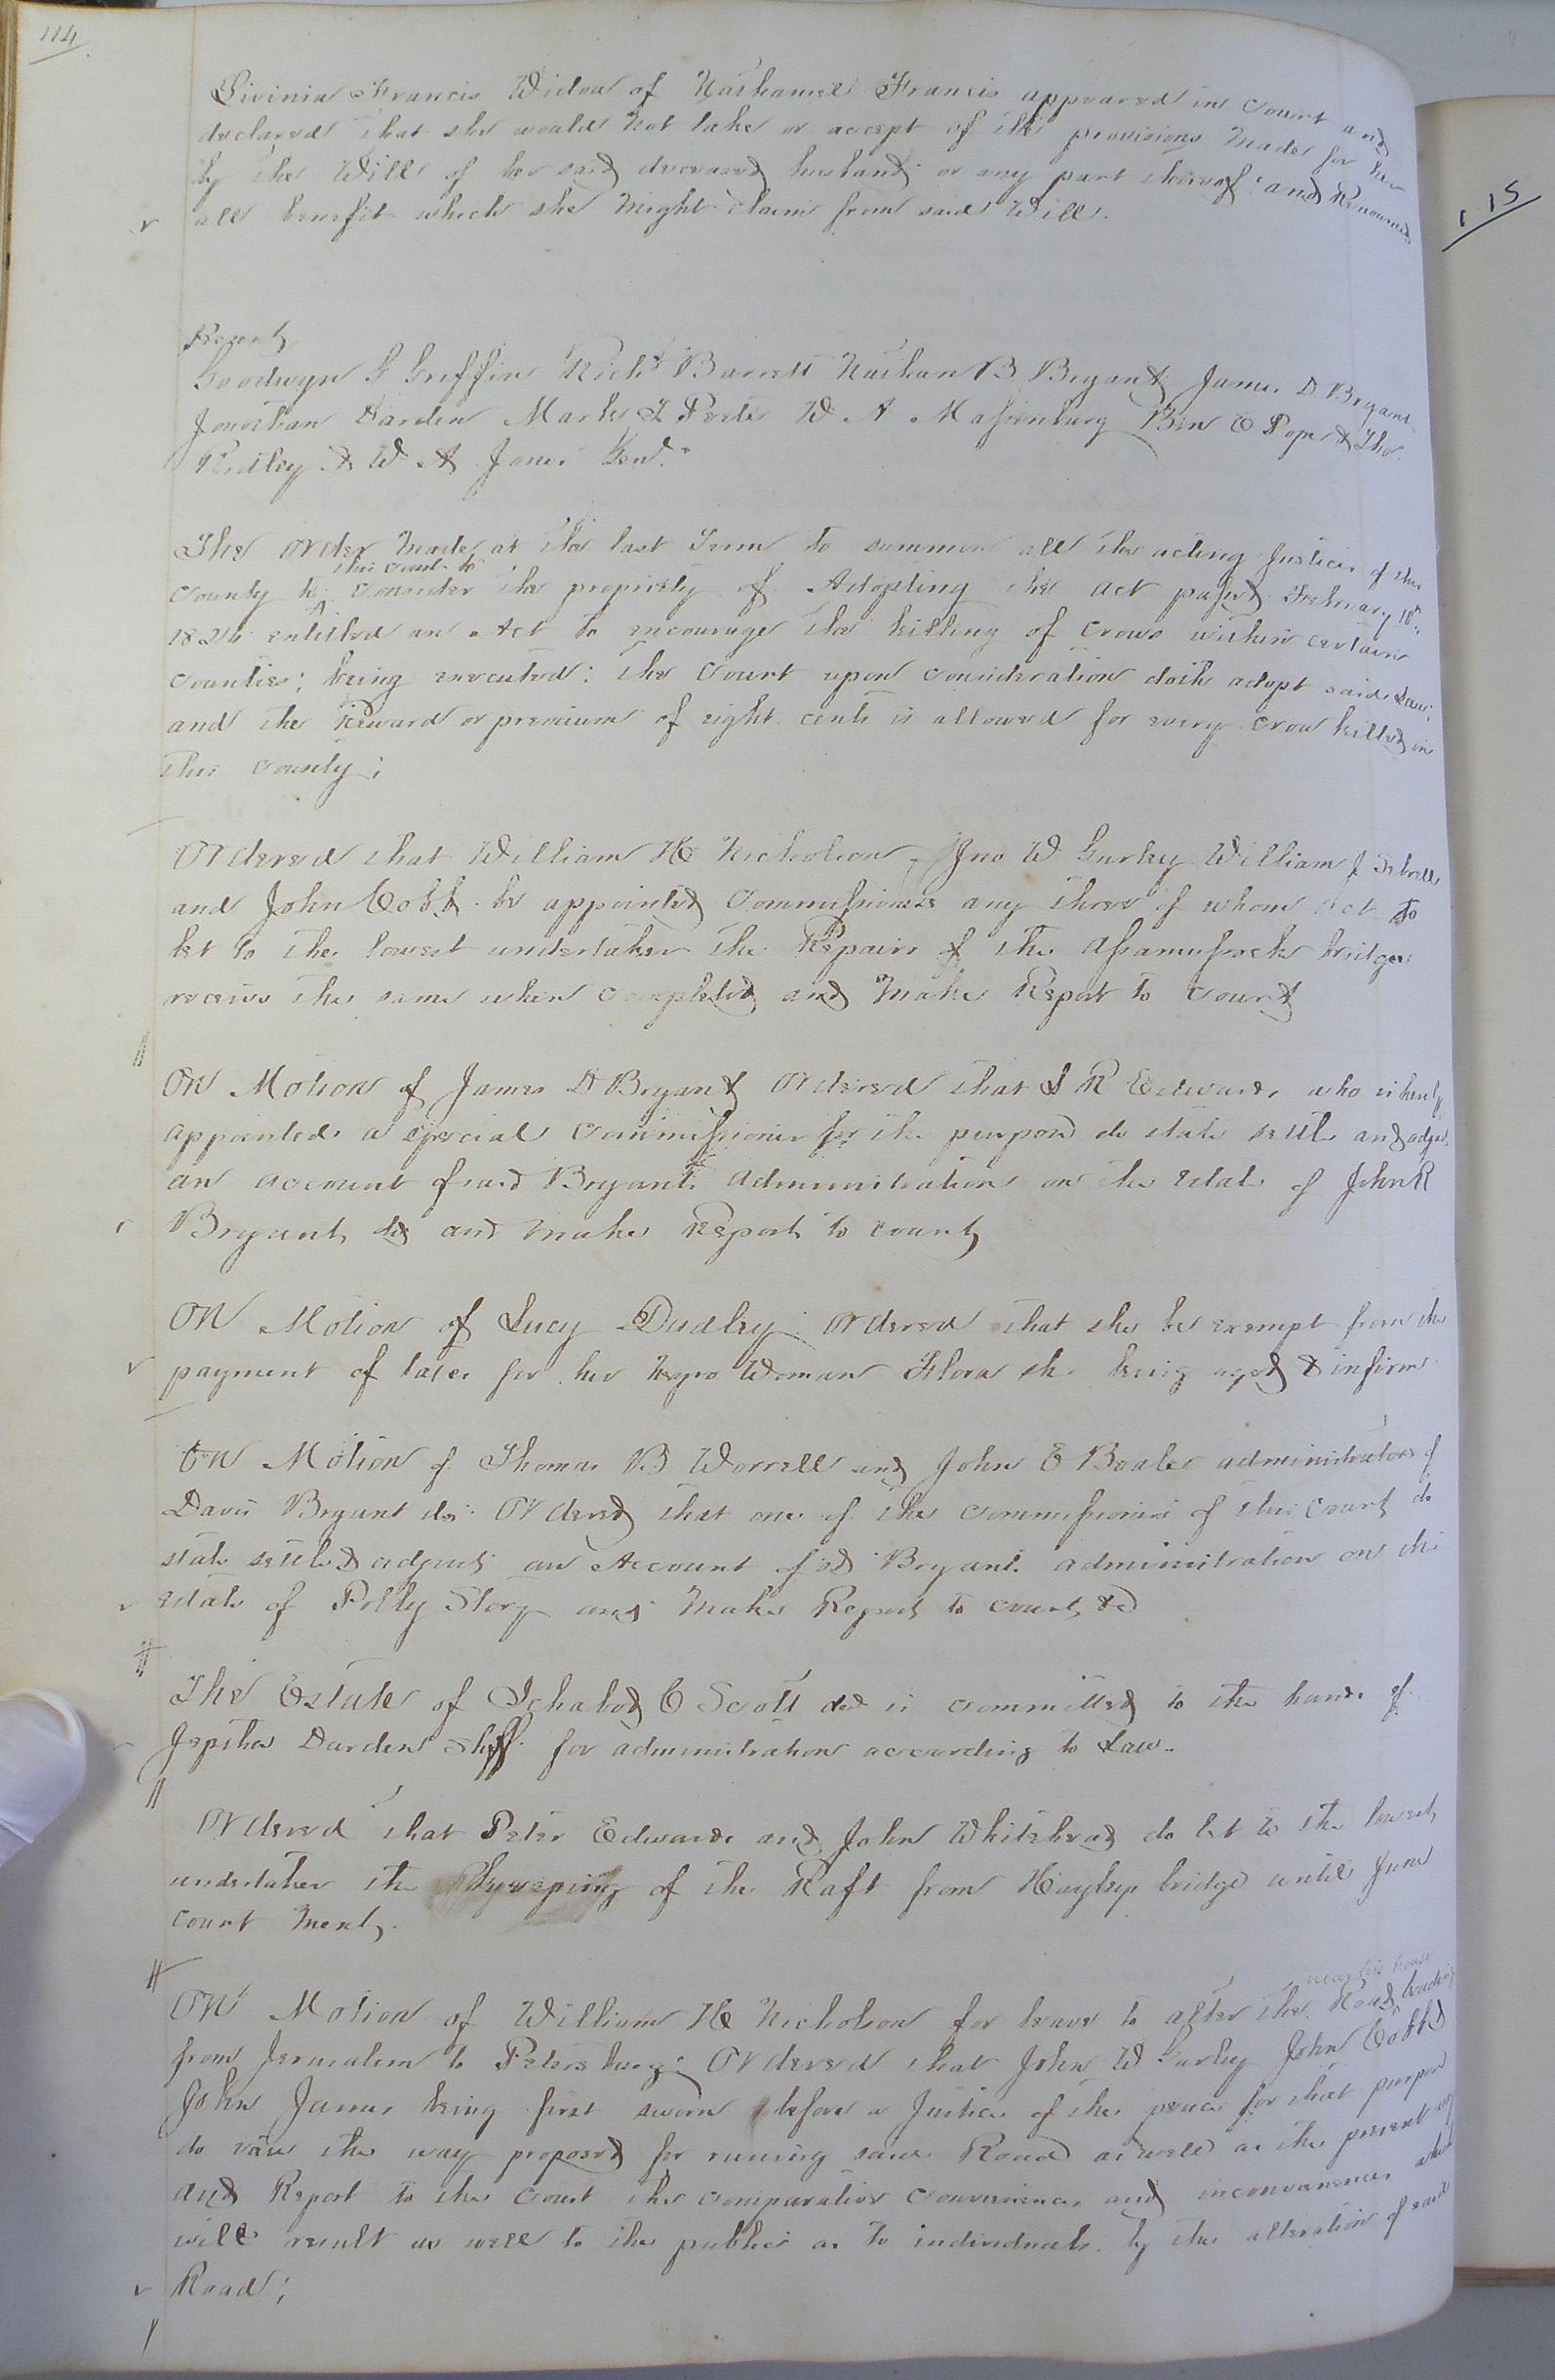 114
Livinia Francis Widow of Nathaniel Francis appeared in Court and
declared that she would not take or accept of the provisions made for her
by the Will of her said deceased husband or any part thereof: and Renounced
all benefit which she might claim from said Will.
115
Present
Goodwyn G Griffin Richd Barrett Nathan B Bryant James D Bryant
Jonathan Darden Mark I Peete W A Massenburg Ben C Pope & Tho.
Ridley & W A Jones Gent.
The order made at the last Term to summon all the acting Justices of the
this court to
County to consider the propriety of Adopting the act passed February 18th
1824 entitled an Act to encourage the killing of crows within certain
counties; being executed: The Court upon consideration doth adopt said Law;
and the Reward or premium of eight cents is allowed for every crow killed in
this county;
Ordered that William H Nicholson Jno W Gurley William J Sebrell
and John Cobb be appointed Commissioners any three of whom act to
let to the lowest undertaker the Repairs of the Assamussock bridge
receive the same when completed and make Report to Court
On Motion of James D Bryant Ordered that J R Edwards who is hereby
appointed a special Commissioner for the purpose do state settle and adjust
an account of said Bryants administration on the estate of John R
Bryant, dd and make Report to court
On Motion of Lucy Dudley Ordered that she be exempt from the
payment of taxes for her negro Woman Flora she being aged & infirm
On Motion of Thomas B Worrell and John E Boales administrators of
Davis Bryant do. Ordered that one of the commissioners of this Court do
state settle & adjust an Account of sd Bryants administration on the
estate of Polly Story and make Report to court &c
The Estate of Ichabod C Scott ded is committed to the hands of
Jeptha Darden Shff for administration according to Law.
Ordered that Peter Edwards and John Whitehead do let to the lowest
undertaker the keeping of the Raft from Hayley bridge until June
court next.
near his house
On Motion of William H Nicholson for leave to alter the Road leading
from Jerusalem to Petersburg: Ordered that John W Gurley John Cobb &
John James being first sworn before a Justice of the peace for that purpose
do view the way proposed for runing said Road as well as the present way
and Report to the Court the comparative conveniences and inconveniences which
will result as well to the public as to individuals by the alteration of said
Road;